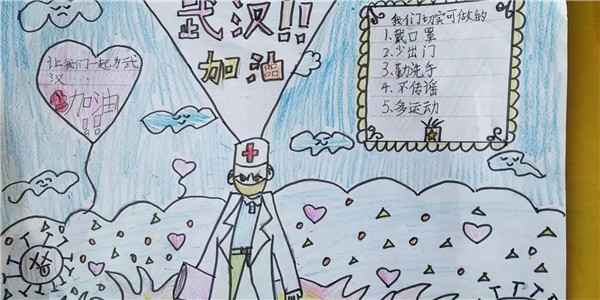 武汉!!
加油
让我们一起为武
汉...
加油
!!
我们切实可做的
1.戴口罩
2.少出门
3.勤洗手
4.不传谣
5.多运动